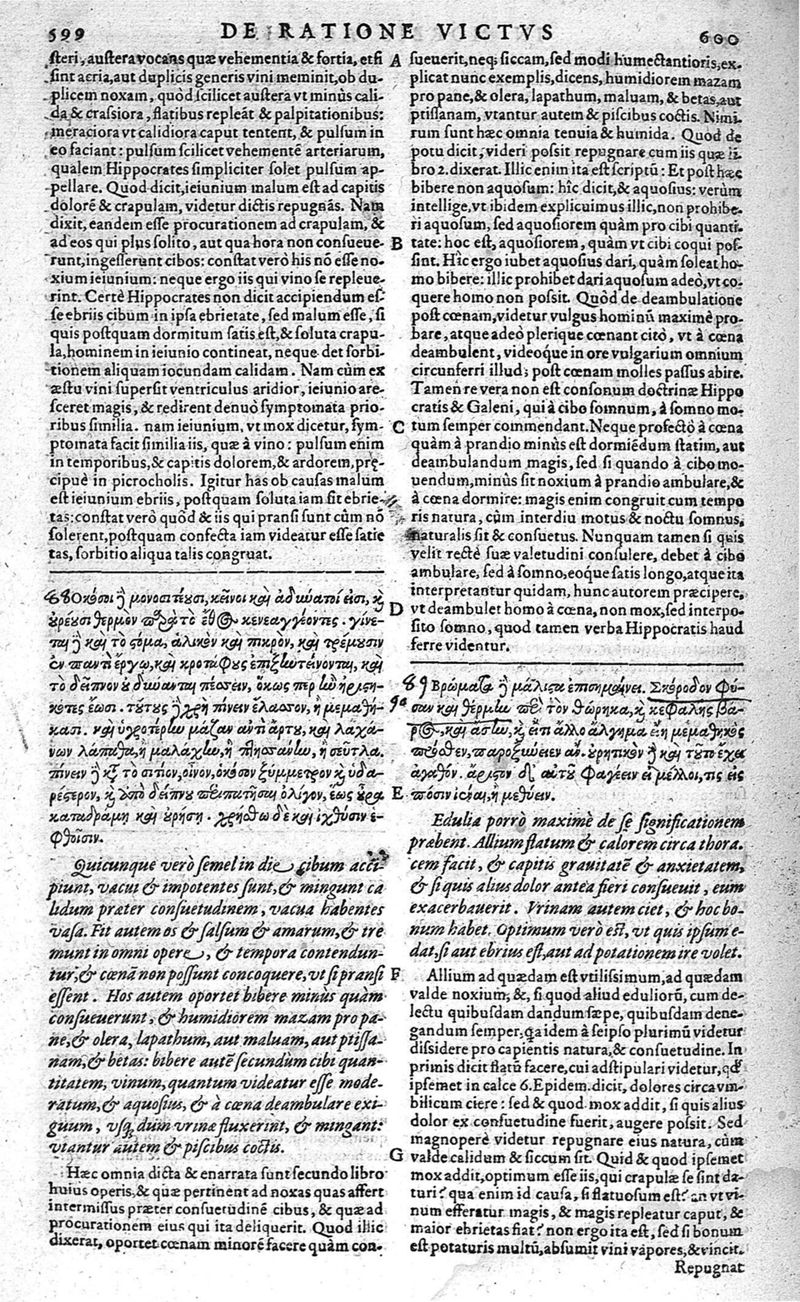 599 DE RATIONE VICTVS 600
ſteri, auſtera vocans quæ vehementia & fortia, etſi
ſint acria, aut duplicis generis vini meminit, ob du-
plicem noxam, quòd ſcilicet auſtera vt minùs cali-
da & craſſiora, flatibus repleāt & palpitationibus:
meraciora vt calidiora caput tentent, & pulſum in
eo faciant: pulſum ſcilicet vehementē arteriarum,
qualem Hippocrates ſimpliciter ſolet pulſum ap-
pellare. Quod dicit, ieiunium malum eſt ad capitis
dolorē & crapulam, videtur dictis repugnās. Nam
dixit, eandem eſſe procurationem ad crapulam, &
ad eos qui plus ſolito, aut qua hora non conſueue-
runt, ingeſſerunt cibos: conſtat verò his nō eſſe no-
xium ieiunium: neque ergo iis qui vino ſe repleue-
rint. Certè Hippocrates non dicit accipiendum eſ-
ſe ebriis cibum in ipſa ebrietate, ſed malum eſſe, ſi
quis poſtquam dormitum ſatis eſt, & ſoluta crapu-
la, hominem in ieiunio contineat, neque det ſorbi-
tionem aliquam iocundam calidam. Nam cùm ex
æſtu vini ſuperſit ventriculus aridior, ieiunio are-
ſceret magis, & redirent denuò ſymptomata prio-
ribus ſimilia. nam ieiunium, vt mox dicetur, ſym-
ptomata facit ſimilia iis, quæ à vino: pulſum enim
in temporibus, & capitis dolorem, & ardorem, prę-
cipuè in picrocholis. Igitur has ob cauſas malum
eſt ieiunium ebriis, poſtquam ſoluta iam ſit ebrie-
tas: conſtat verò quòd & iis qui pranſi ſunt cùm nō
ſolerent, poſtquam confecta iam videatur eſſe ſatie
tas, ſorbitio aliqua talis congruat.
68 Ὁκόσοι ἢ μονοσιτέουσι, κεῖνοι καὶ ἀδύνατοί εἰσι, κ̀
οὐρέουσι θερμὸν παρὰ τὸ ἔθος κενεαγγέοντες. γίνε-
ται ἢ καὶ τὸ στόμα, ἁλικὸν καὶ πικρὸν, καὶ τρέμουσιν
ἐν παντὶ ἔργῳ, καὶ κροτάφους ἐπιξυντείνονται, καὶ
τὸ δεῖπνον οὐ δύνανται πέσσειν, ὅκως περ ἢν ἠριστη-
κότες ἔωσι. τούτους ἢ χρὴ πίνειν ἔλασσον, ἢ μεμαθή-
κασι. καὶ ὑγροτέρην μᾶζαν ἀντὶ ἄρτου, καὶ λαχά-
νων λάπαθα, ἢ μαλάχην, ἢ πτισάνην, ἢ σεῦτλα.
πίνειν ἢ κατὰ τὸ σιτίον, οἶνον, ὁκόσον ξύμμετρον κ̀ ὑδα-
ρέστερον, κ̀ ἀπὸ δείπνου περιπατῆσαι ὀλίγον, ἕως οὖρα
καταδράμῃ καὶ οὐρήσῃ. χρήσθω δὲ καὶ ἰχθύσιν ἑ-
φθοῖσιν.
Quicunque verò ſemel in die cibum acci-
piunt, vacui & impotentes ſunt, & mingunt ca
lidum præter conſuetudinem, vacua habentes
vaſa. Fit autem os & ſalſum & amarum, & tre
munt in omni opere, & tempora contendun-
tur, & cœnā non poſſunt concoquere, vt ſi pranſi
eſſent. Hos autem oportet bibere minùs quàm
conſueuerunt, & humidiorem mazam pro pa-
ne, & olera, lapathum, aut maluam, aut ptiſſa-
nam, & betas: bibere autē ſecundùm cibi quan-
titatem, vinum, quantum videatur eſſe mode-
ratum, & aquoſius, & à cœna deambulare exi-
guum, vſq; dum vrinæ fluxerint, & mingant:
vtantur autem & piſcibus coctis.
Hæc omnia dicta & enarrata ſunt ſecundo libro
huius operis, & quæ pertinent ad noxas quas affert
intermiſſus præter conſuetudinē cibus, & quæ ad
procurationem eius qui ita deliquerit. Quod illic
dixerat, oportet cœnam minorē facere quàm con-
A
ſueuerit, neq; ſiccam, ſed modi humectantioris, ex-
plicat nunc exemplis, dicens, humidiorem mazam
pro pane, & olera, lapathum, maluam, & betas, aut
ptiſſanam, vtantur autem & piſcibus coctis. Nimi-
rum ſunt hæc omnia tenuia & humida. Quod de
potu dicit, videri poſſit repugnare cum iis quæ li-
bro 2. dixerat. Illic enim ita eſt ſcriptū: Et poſt hæc
bibere non aquoſum: hîc dicit, & aquoſius: verùm
intellige, vt ibidem explicuimus illic, non prohibe-
ri aquoſum, ſed aquoſiorem quàm pro cibi quanti-
B
tate: hoc eſt, aquoſiorem, quàm vt cibi coqui poſ-
ſint. Hîc ergo iubet aquoſius dari, quàm ſoleat ho-
mo bibere: illic prohibet dari aquoſum adeò, vt co-
quere homo non poſſit. Quòd de deambulatione
poſt cœnam, videtur vulgus hominū maximè pro-
bare, atque adeò plerique cœnant citò, vt à cœna
deambulent, videoque in ore vulgarium omnium
circunferri illud; poſt cœnam molles paſſus abire.
Tamen re vera non eſt conſonum doctrinæ Hippo
cratis & Galeni, qui à cibo ſomnum, à ſomno mo-
C
tum ſemper commendant. Neque profectò à cœna
quàm à prandio minùs eſt dormiēdum ſtatim, aut
deambulandum magis, ſed ſi quando à cibo mo-
uendum, minùs ſit noxium à prandio ambulare, &
à cœna dormire: magis enim congruit cum tempo
ris natura, cùm interdiu motus & noctu ſomnus,
naturalis ſit & conſuetus. Nunquam tamen ſi quis
velit rectè ſuæ valetudini conſulere, debet à cibo
ambulare, ſed à ſomno, eoque ſatis longo, atque ita
interpretantur quidam, hunc autorem præcipere,
D
vt deambulet homo à cœna, non mox, ſed interpo-
ſito ſomno, quod tamen verba Hippocratis haud
ferre videntur.
69 Βρώματα ἢ μάλιστα ἐπισημαίνει. Σκόροδον φῦ-
σαν καὶ θέρμην περὶ τὸν θώρηκα, κ̀ κεφαλῆς βά-
ρος, καὶ ἄσην, κ̀ εἴ τι ἄλλο ἄλγημα εἴη μεμαθηκὸς
πρόσθεν, παροξύνειεν ἄν. οὐρητικὸν ἢ καὶ τοῦτο ἔχει
ἀγαθόν. ἄριστον δ᾽ αὐτοῦ φαγέειν εἰ μέλλοι, τις εἰς
E
πόσιν ἰέναι, ἢ μεθύειν.
Edulia porrò maximè de ſe ſignificationem
præbent. Allium flatum & calorem circa thora-
cem facit, & capitis grauitatē & anxietatem,
& ſi quis alius dolor antea fieri conſueuit, eum
exacerbauerit. Vrinam autem ciet, & hoc bo-
num habet. Optimum verò eſt, vt quis ipſum e-
dat, ſi aut ebrius eſt, aut ad potationem ire volet.
F
Allium ad quædam eſt vtiliſſimum, ad quædam
valde noxium; &, ſi quod aliud eduliorū, cum de-
lectu quibuſdam dandum ſæpe, quibuſdam dene-
gandum ſemper, quidem à ſeipſo plurimū videtur
diſſidere pro capientis natura, & conſuetudine. In
primis dicit flatū facere, cui adſtipulari videtur, qđ
ipſemet in calce 6. Epidem. dicit, dolores circa vm-
bilicum ciere: ſed & quod mox addit, ſi quis alius
dolor ex conſuetudine fuerit, augere poſſit. Sed
magnoperè videtur repugnare eius natura, cùm
G
valde calidum & ſiccum ſit. Quid & quod ipſemet
mox addit, optimum eſſe iis, qui crapulæ ſe ſint da-
turi? qua enim id cauſa, ſi flatuoſum eſt? an vt vi-
num efferatur magis, & magis repleatur caput, &
maior ebrietas fiat? non ergo ita eſt, ſed ſi bonum
eſt potaturis multū, abſumit vini vapores, & vincit.
Repugnat